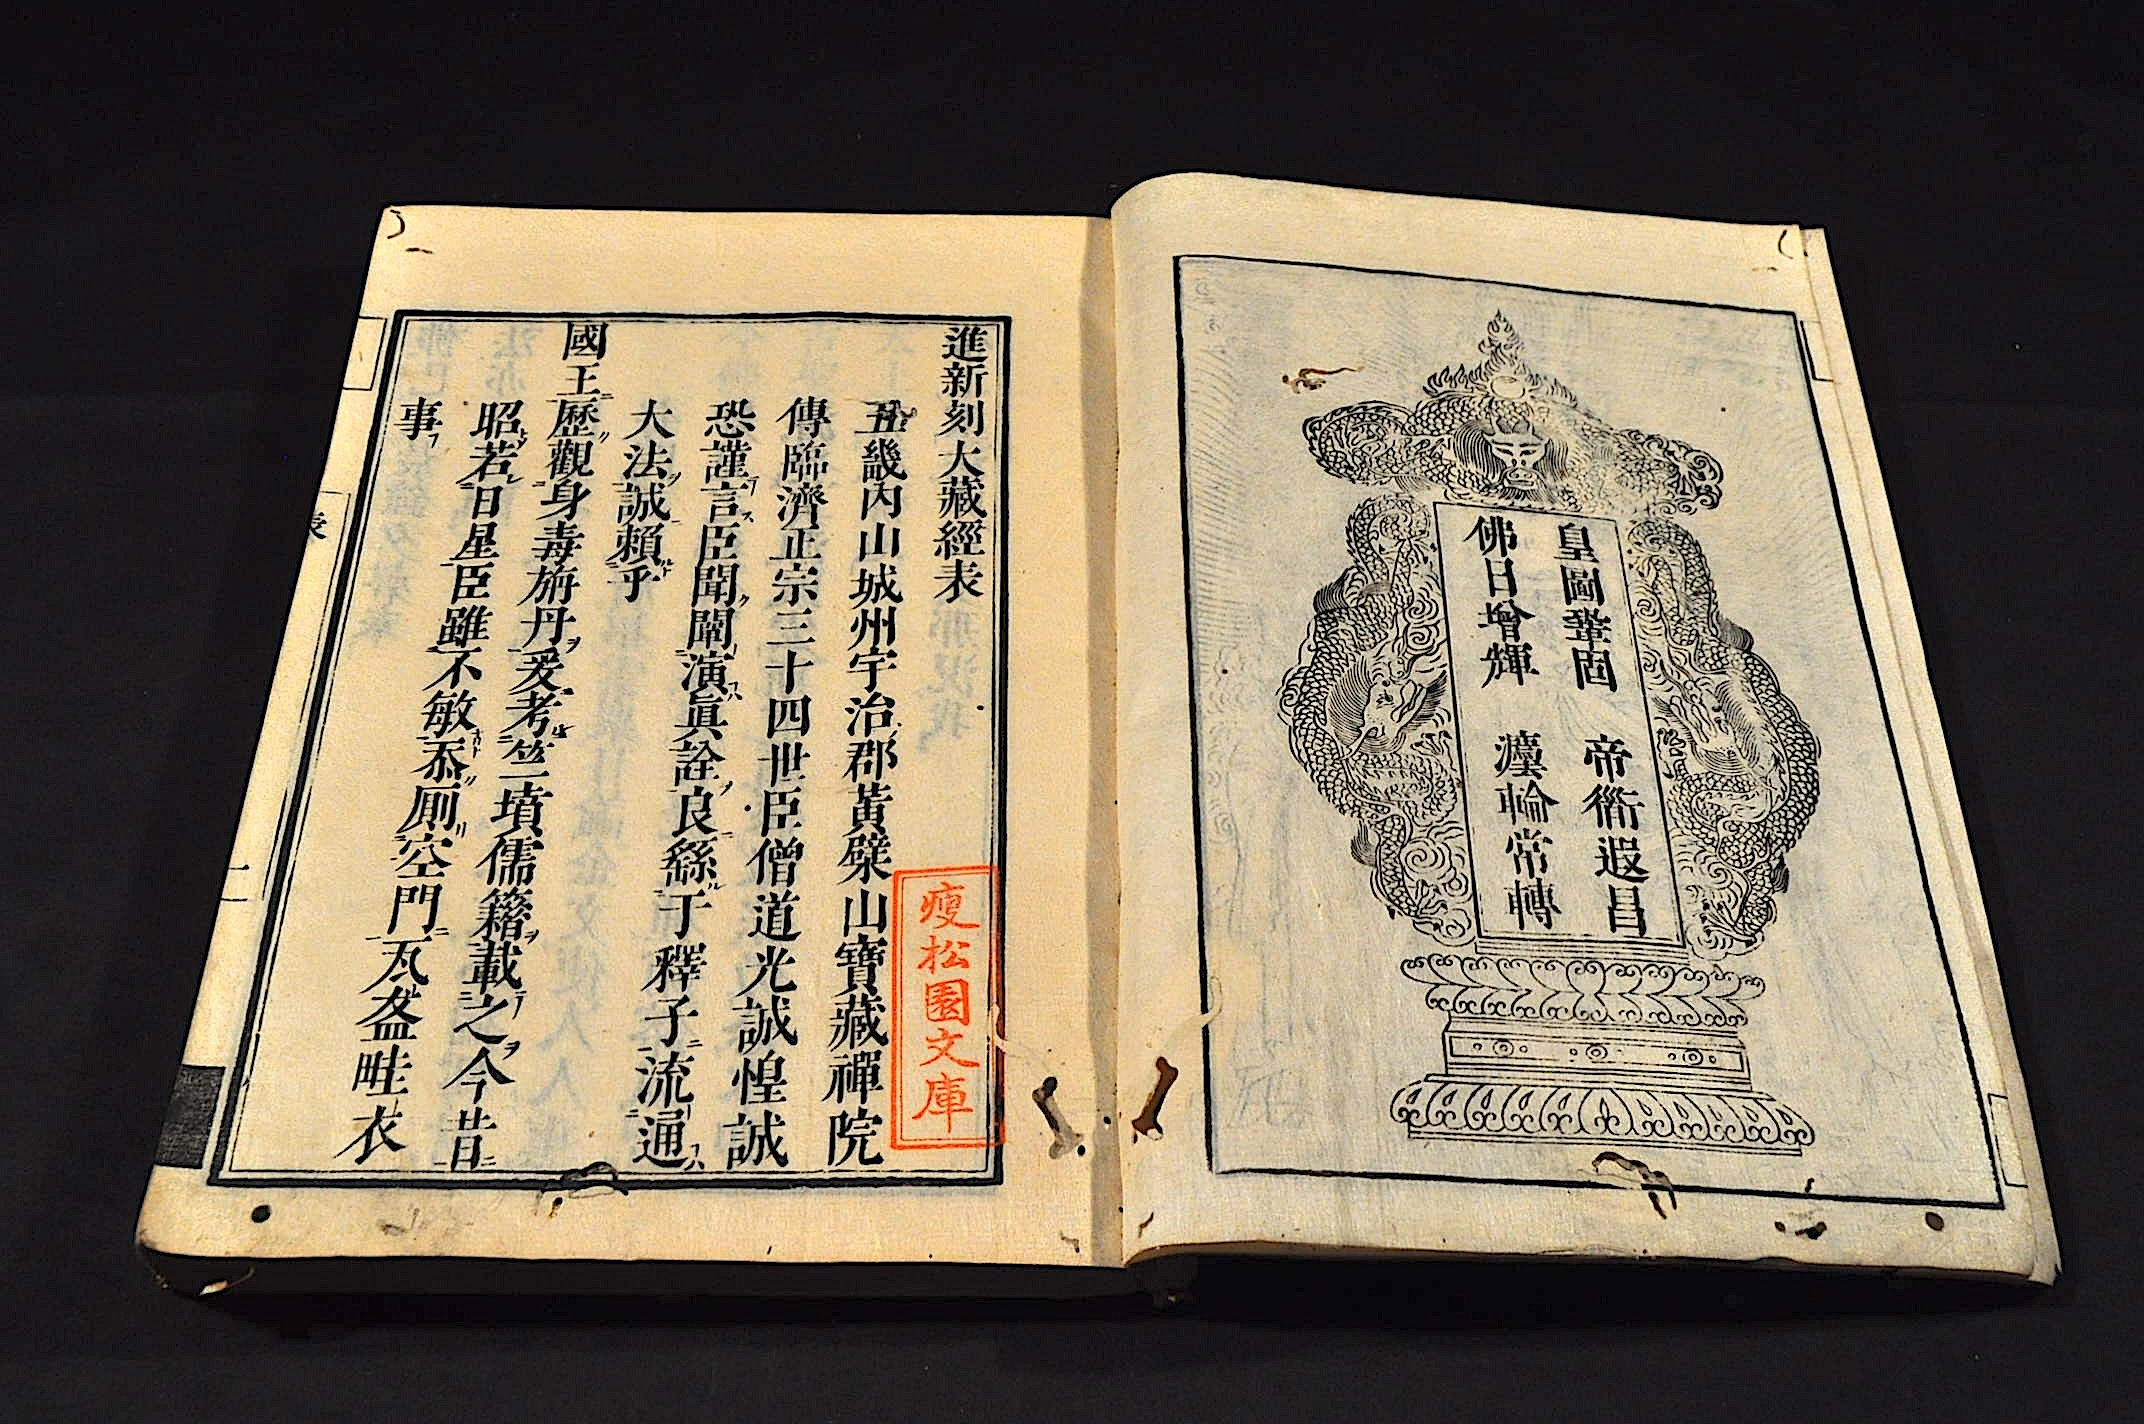 皇圖鞏固　帝衜遐昌
佛日增輝　灋輪常轉
進新刻大藏經表
五畿內山城州宇治郡黃檗山寶藏禪院
傳臨濟正宗三十四世臣僧道光誠惶誠
恐謹言臣聞闡演眞詮良繇于釋子流通
大法誠賴乎
國王歷觀身毒旃丹爰考竺墳儒籍載之今昔
昭若日星臣雖不敏忝厠空門瓦盔畦衣
事
瘦松園文庫
表
一